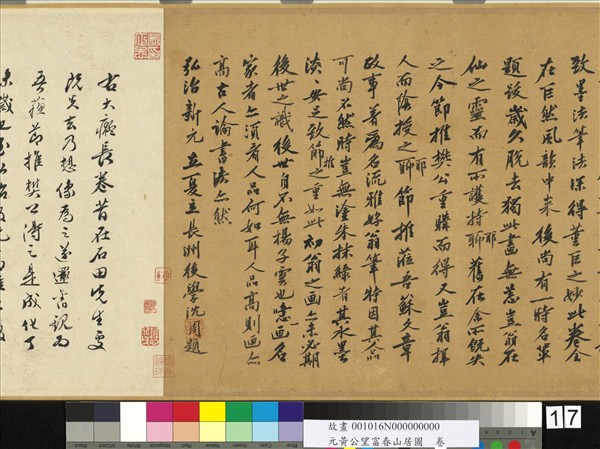 致墨法筆法深得董巨之妙此卷全
在巨然風韻中来後尚有一時名輩
題跋歲久脫去獨此畫無恙豈翁在
仙之靈而有所護持耶舊在余所既失
之今節推樊公重購而得又豈翁擇
人而陰授之耶節推莅吾蘇文章
政事著為名流雅好翁筆特因其人品
可尚不然時豈無塗朱抹綠者其水墨
淡淡安足致節推之重如此初翁之画亦未必期
後世之識後世自不無揚子雲也噫以画名
家者亦須看人品何如耳人品高則画亦
高古人論書法亦然
弘治新元立夏長洲後學沈周題
右大癡長卷昔在石田先生處
既失去乃想像為之遂還舊觀為
吾蘇節推樊公得之是成化丁
未歲也
17
故畫 001016N000000000
元黃公望富春山居圖 卷